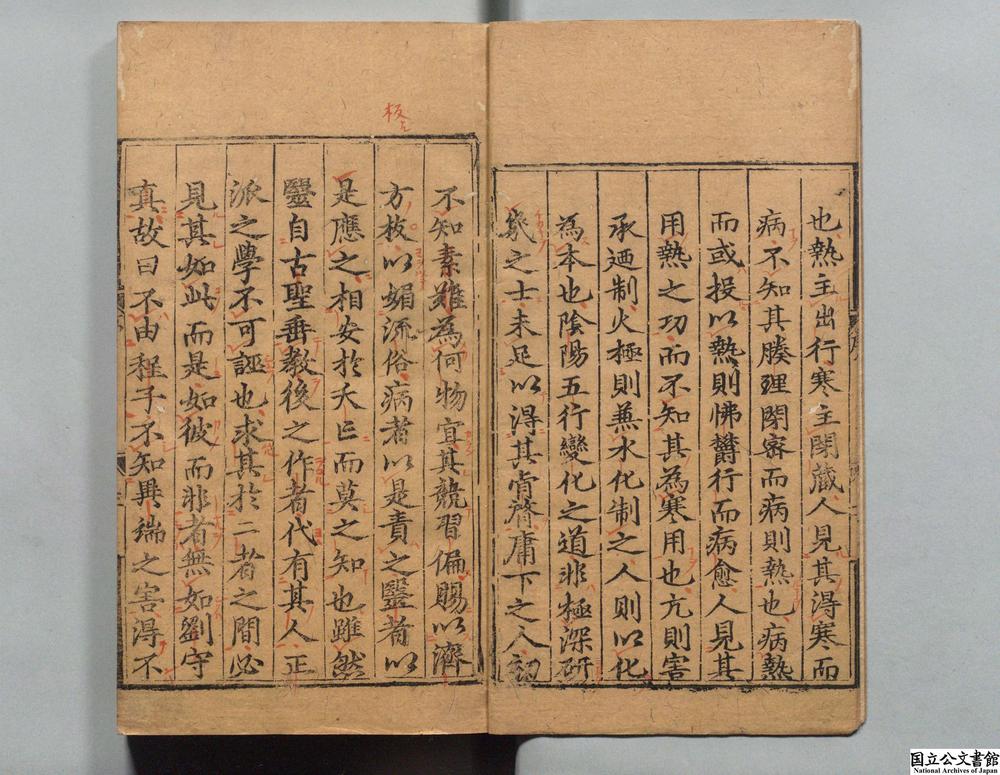 也熱主出行寒主閉藏人見其得寒而
病不知其腠理閉密而病則熱也病熱
而或投以熱則怫欝行而病愈人見其
用熱之功而不知其為寒用也亢則害
承迺制火極則兼水化制之人則以化
為本也陰陽五行變化之道非極深研
幾之士未足以得其肯綮庸下之人初
不知素難為何物宜其競習偏賜以濟
方技以媚流俗病者以是責之醫者以
是應之相安於夭亡而莫之知也雖然
毉自古聖垂教後之作者代有其人正
派之學不可誣也求其於二者之間必
見其如此而是如彼而非者無如劉守
真故曰不由程子不知異端之害得不
国立公文書館
National Archives of Japan